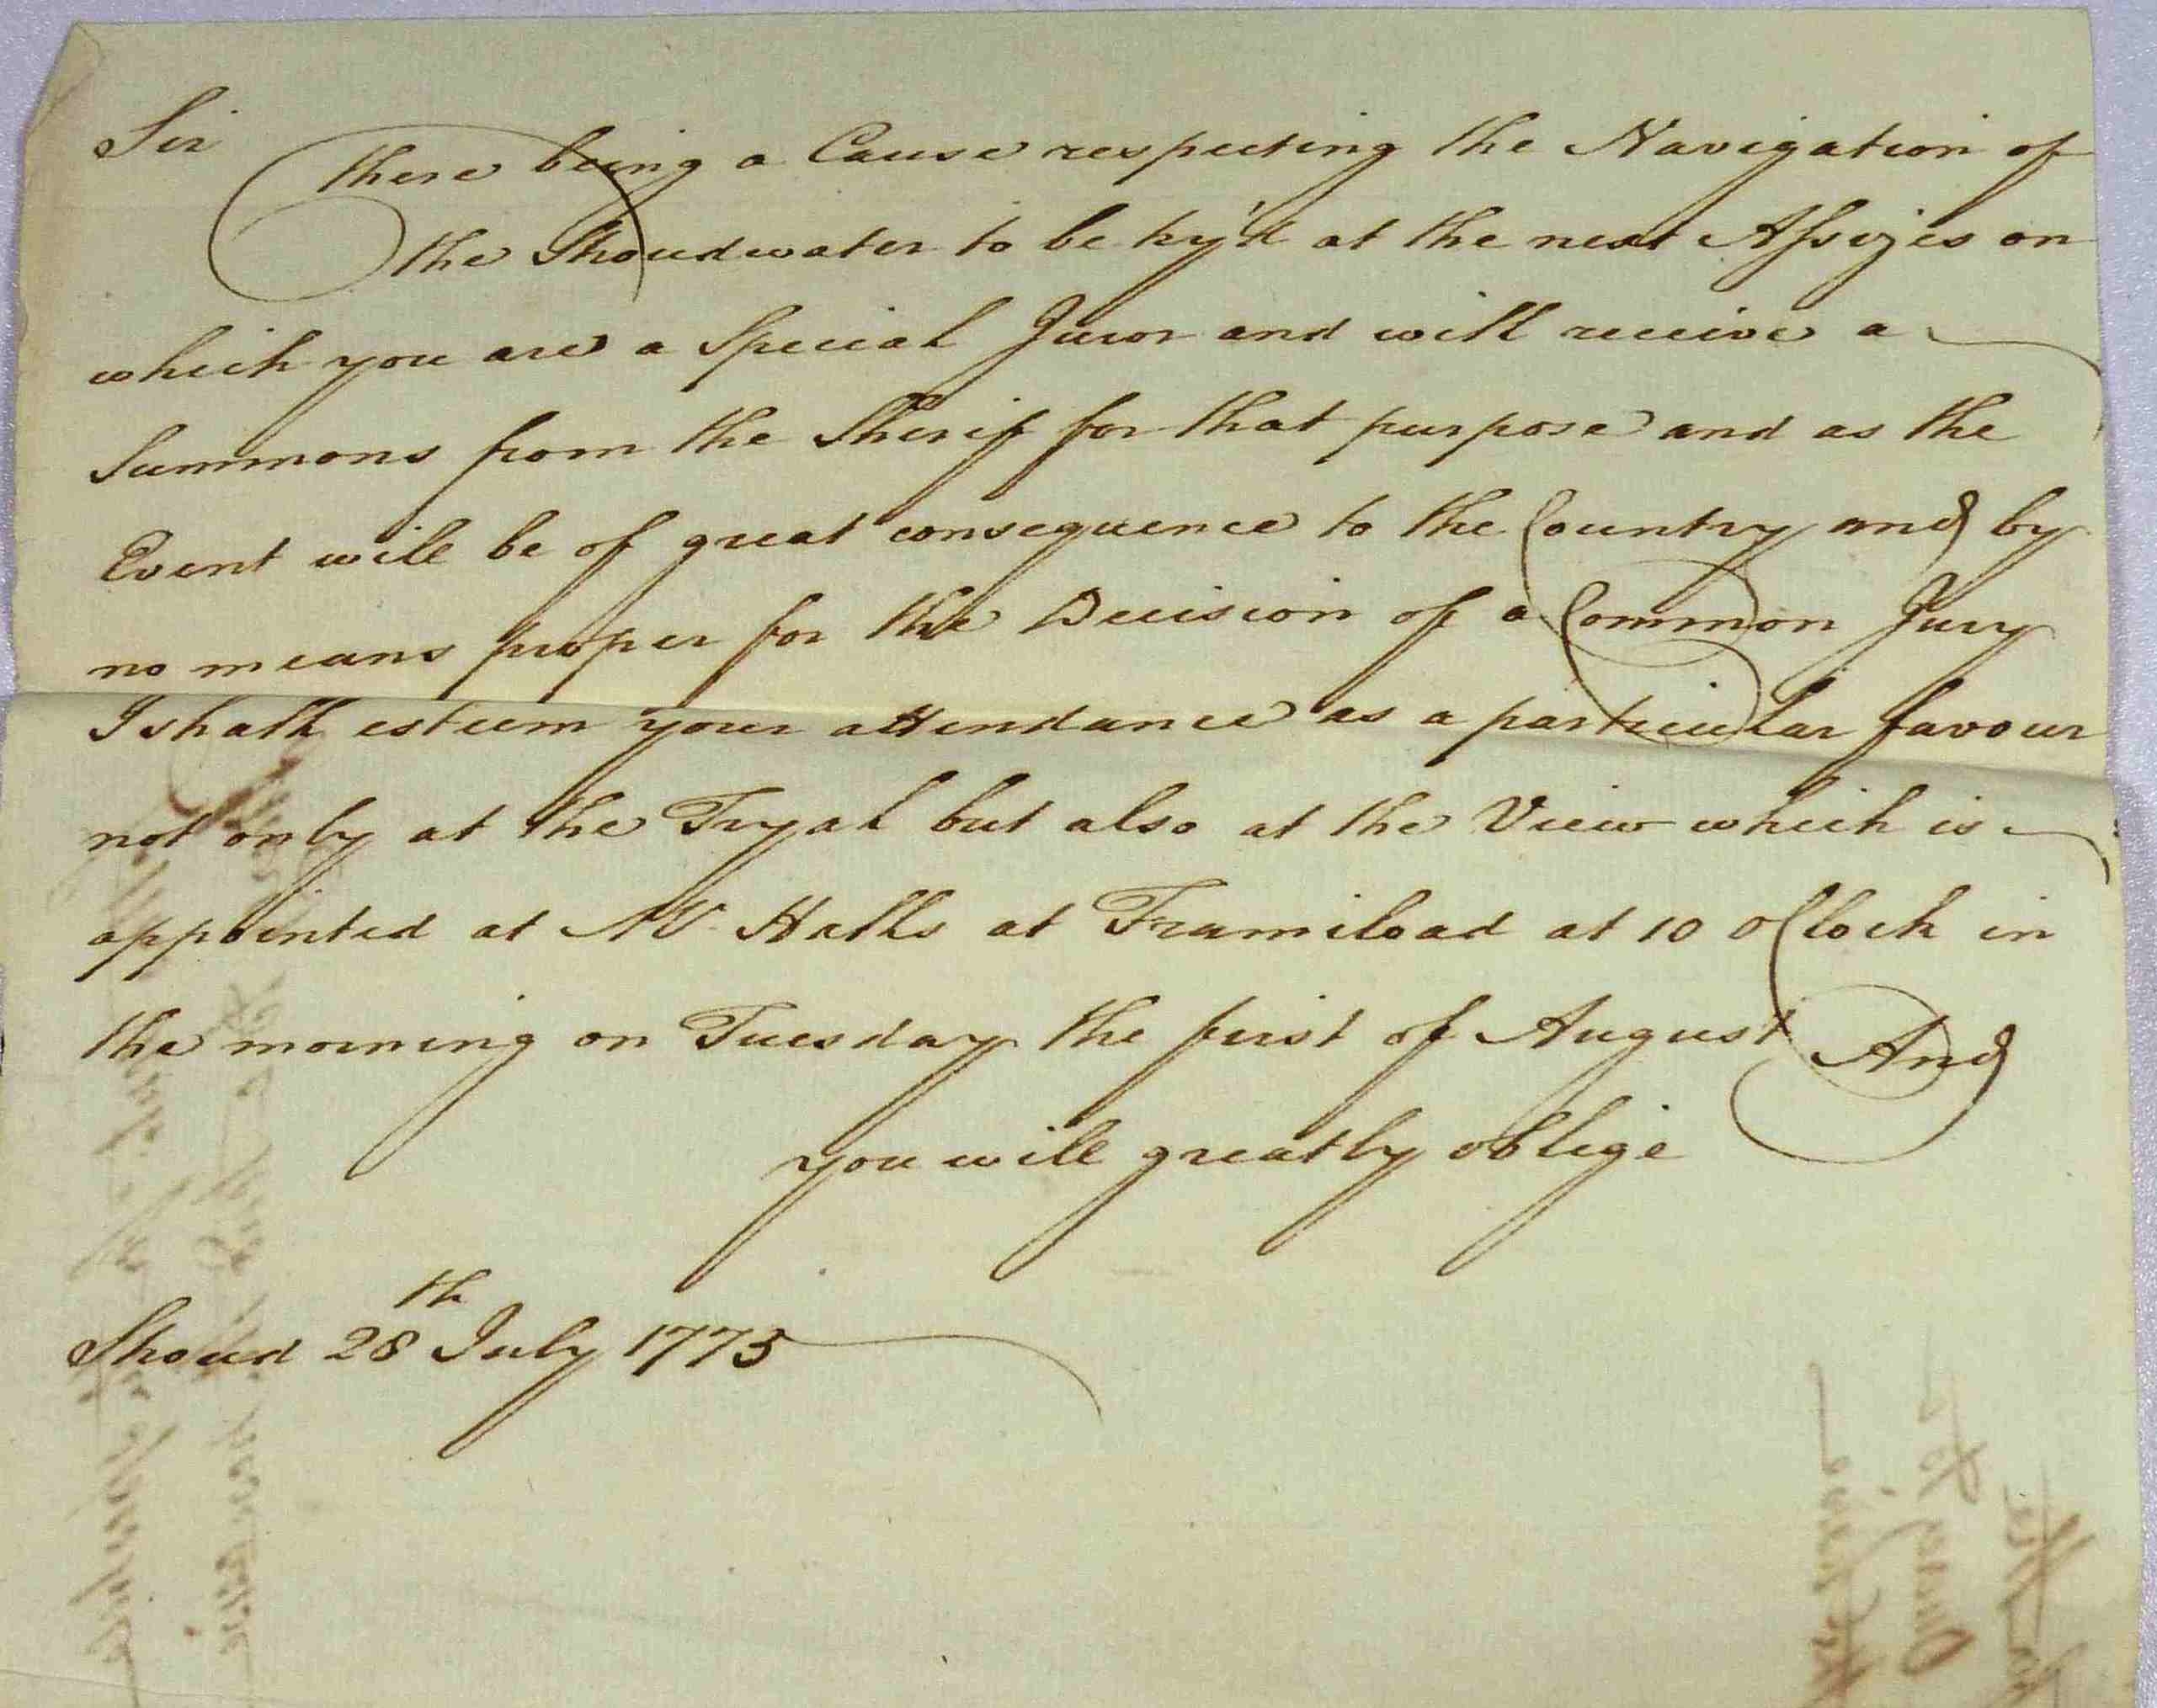 Sir
There being a Cause respecting the Navigation of
the Stroudwater to be try'd at the next Assizes on
which you are a Special Juror and will receive a
Summons from the Sherif for that purpose and as the
Event will be of great consequence to the Country and by
no means proper for the Decision of a Common Jury
I shall esteem your attendance as a particular favour
not only at the Tryal but also at the View which is
appointed at Mr. Halls at Framiload at 10 oClock in
the morning on Tuesday the first of August And
you will greatly oblige
Stroud 28th July 1775